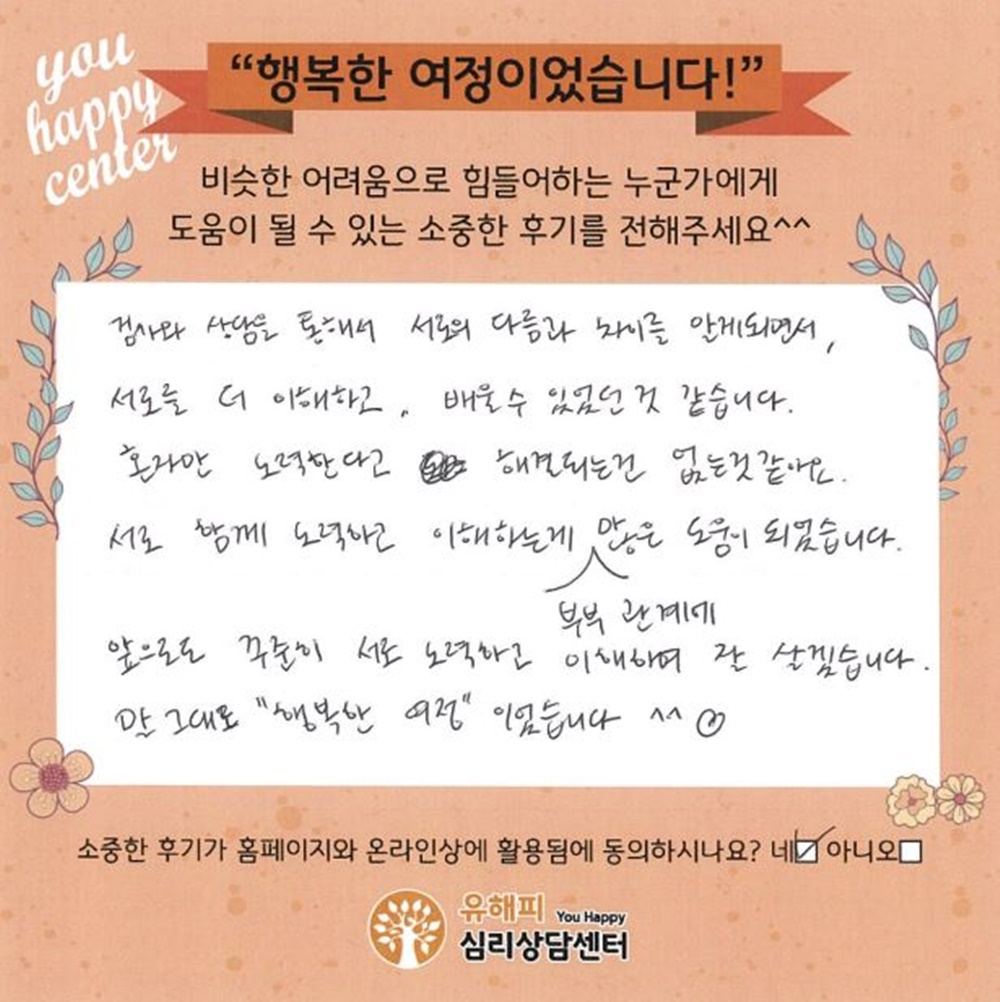 you
happy
center
“행복한 여정이었습니다!”
비슷한 어려움으로 힘들어하는 누군가에게
도움이 될 수 있는 소중한 후기를 전해주세요^^
검사와 상담을 통해서 서로의 다름과 차이를 알게되면서,
서로를 더 이해하고, 배울수 있었던것 같습니다.
혼자만 노력한다고 해결되는건 없는것같아요.
서로 함께 노력하고 이해하는게 많은 도움이 되었습니다.
부부 관계에
앞으로도 꾸준이 서로 노력하고 이해하며 잘 살겠습니다.
말 그대로 "행복한 여정" 이었습니다 ^^
소중한 후기가 홈페이지와 온라인상에 활용됨에 동의하시나요? 네☑ 아니오☐
유해피 You Happy
심리상담센터